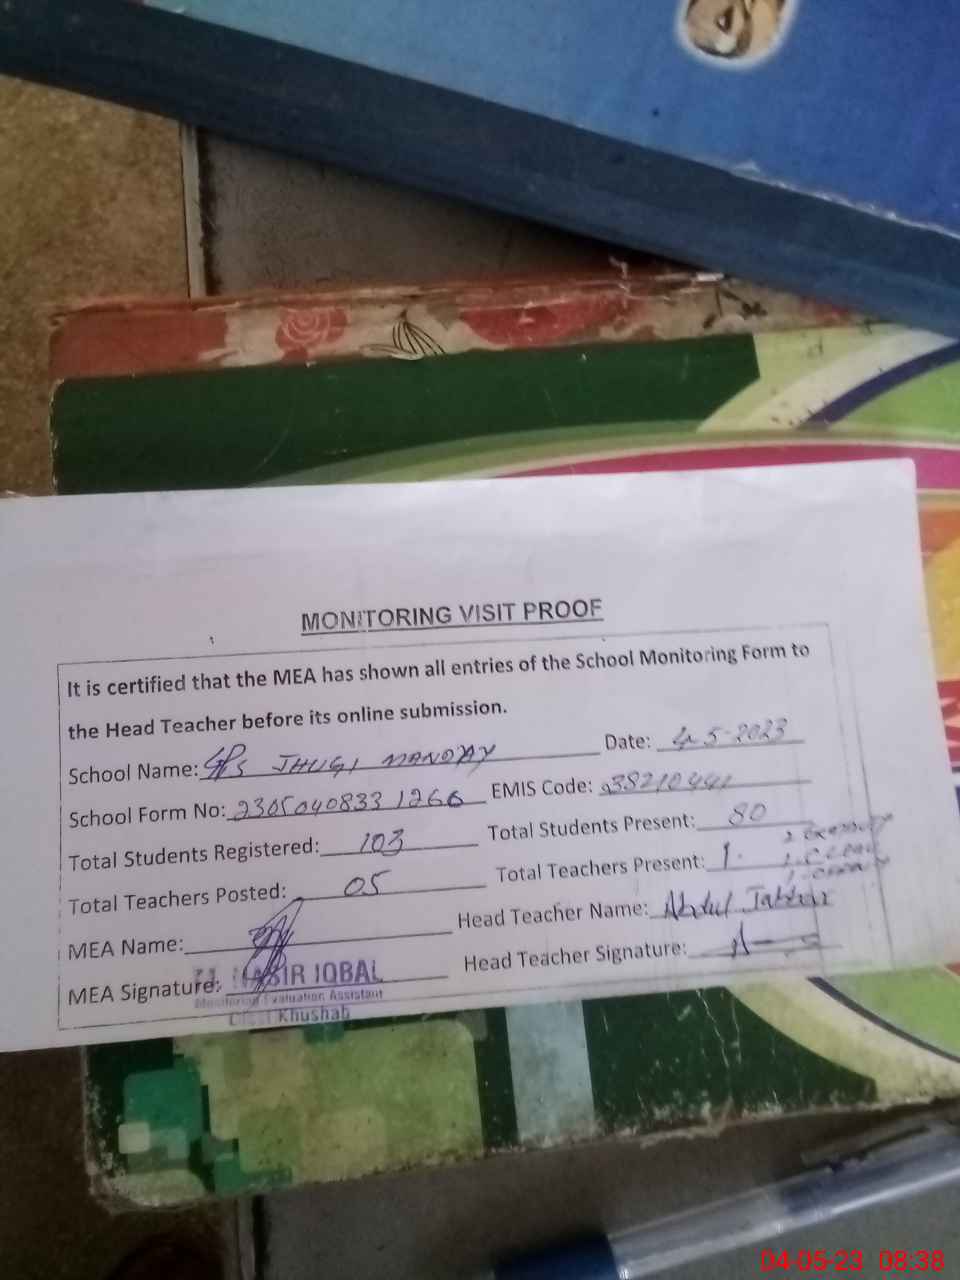 MONITORING VISIT PROOF
It is certified that the MEA has shown all entries of the School Monitoring Form to
the Head Teacher before its online submission.
School Name: GPS JHUGI Date: 4-5-2023
School Form No: 23050408331266 EMIS Code: 38210441
Total Students Registered: 103 Total Students Present: 80
Total Teachers Posted: 05 Total Teachers Present: 1
MEA Name: Head Teacher Name: Abdul
MEA Signature: Head Teacher Signature:
IQBAL
Monitoring Evaluation Assistant
Distt Khushab
04-05-23 08:38